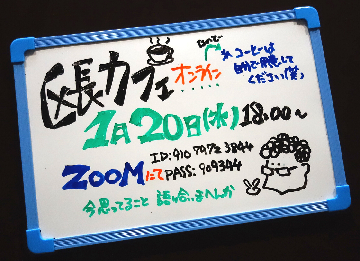 区長カフェ
オンライン
コーヒーは
自分で用意して
ください(笑)
1月20日(水) 18:00~
ID:910 7972 3844
ZOOMにて PASS:909344
今思ってること 語り合いませんか